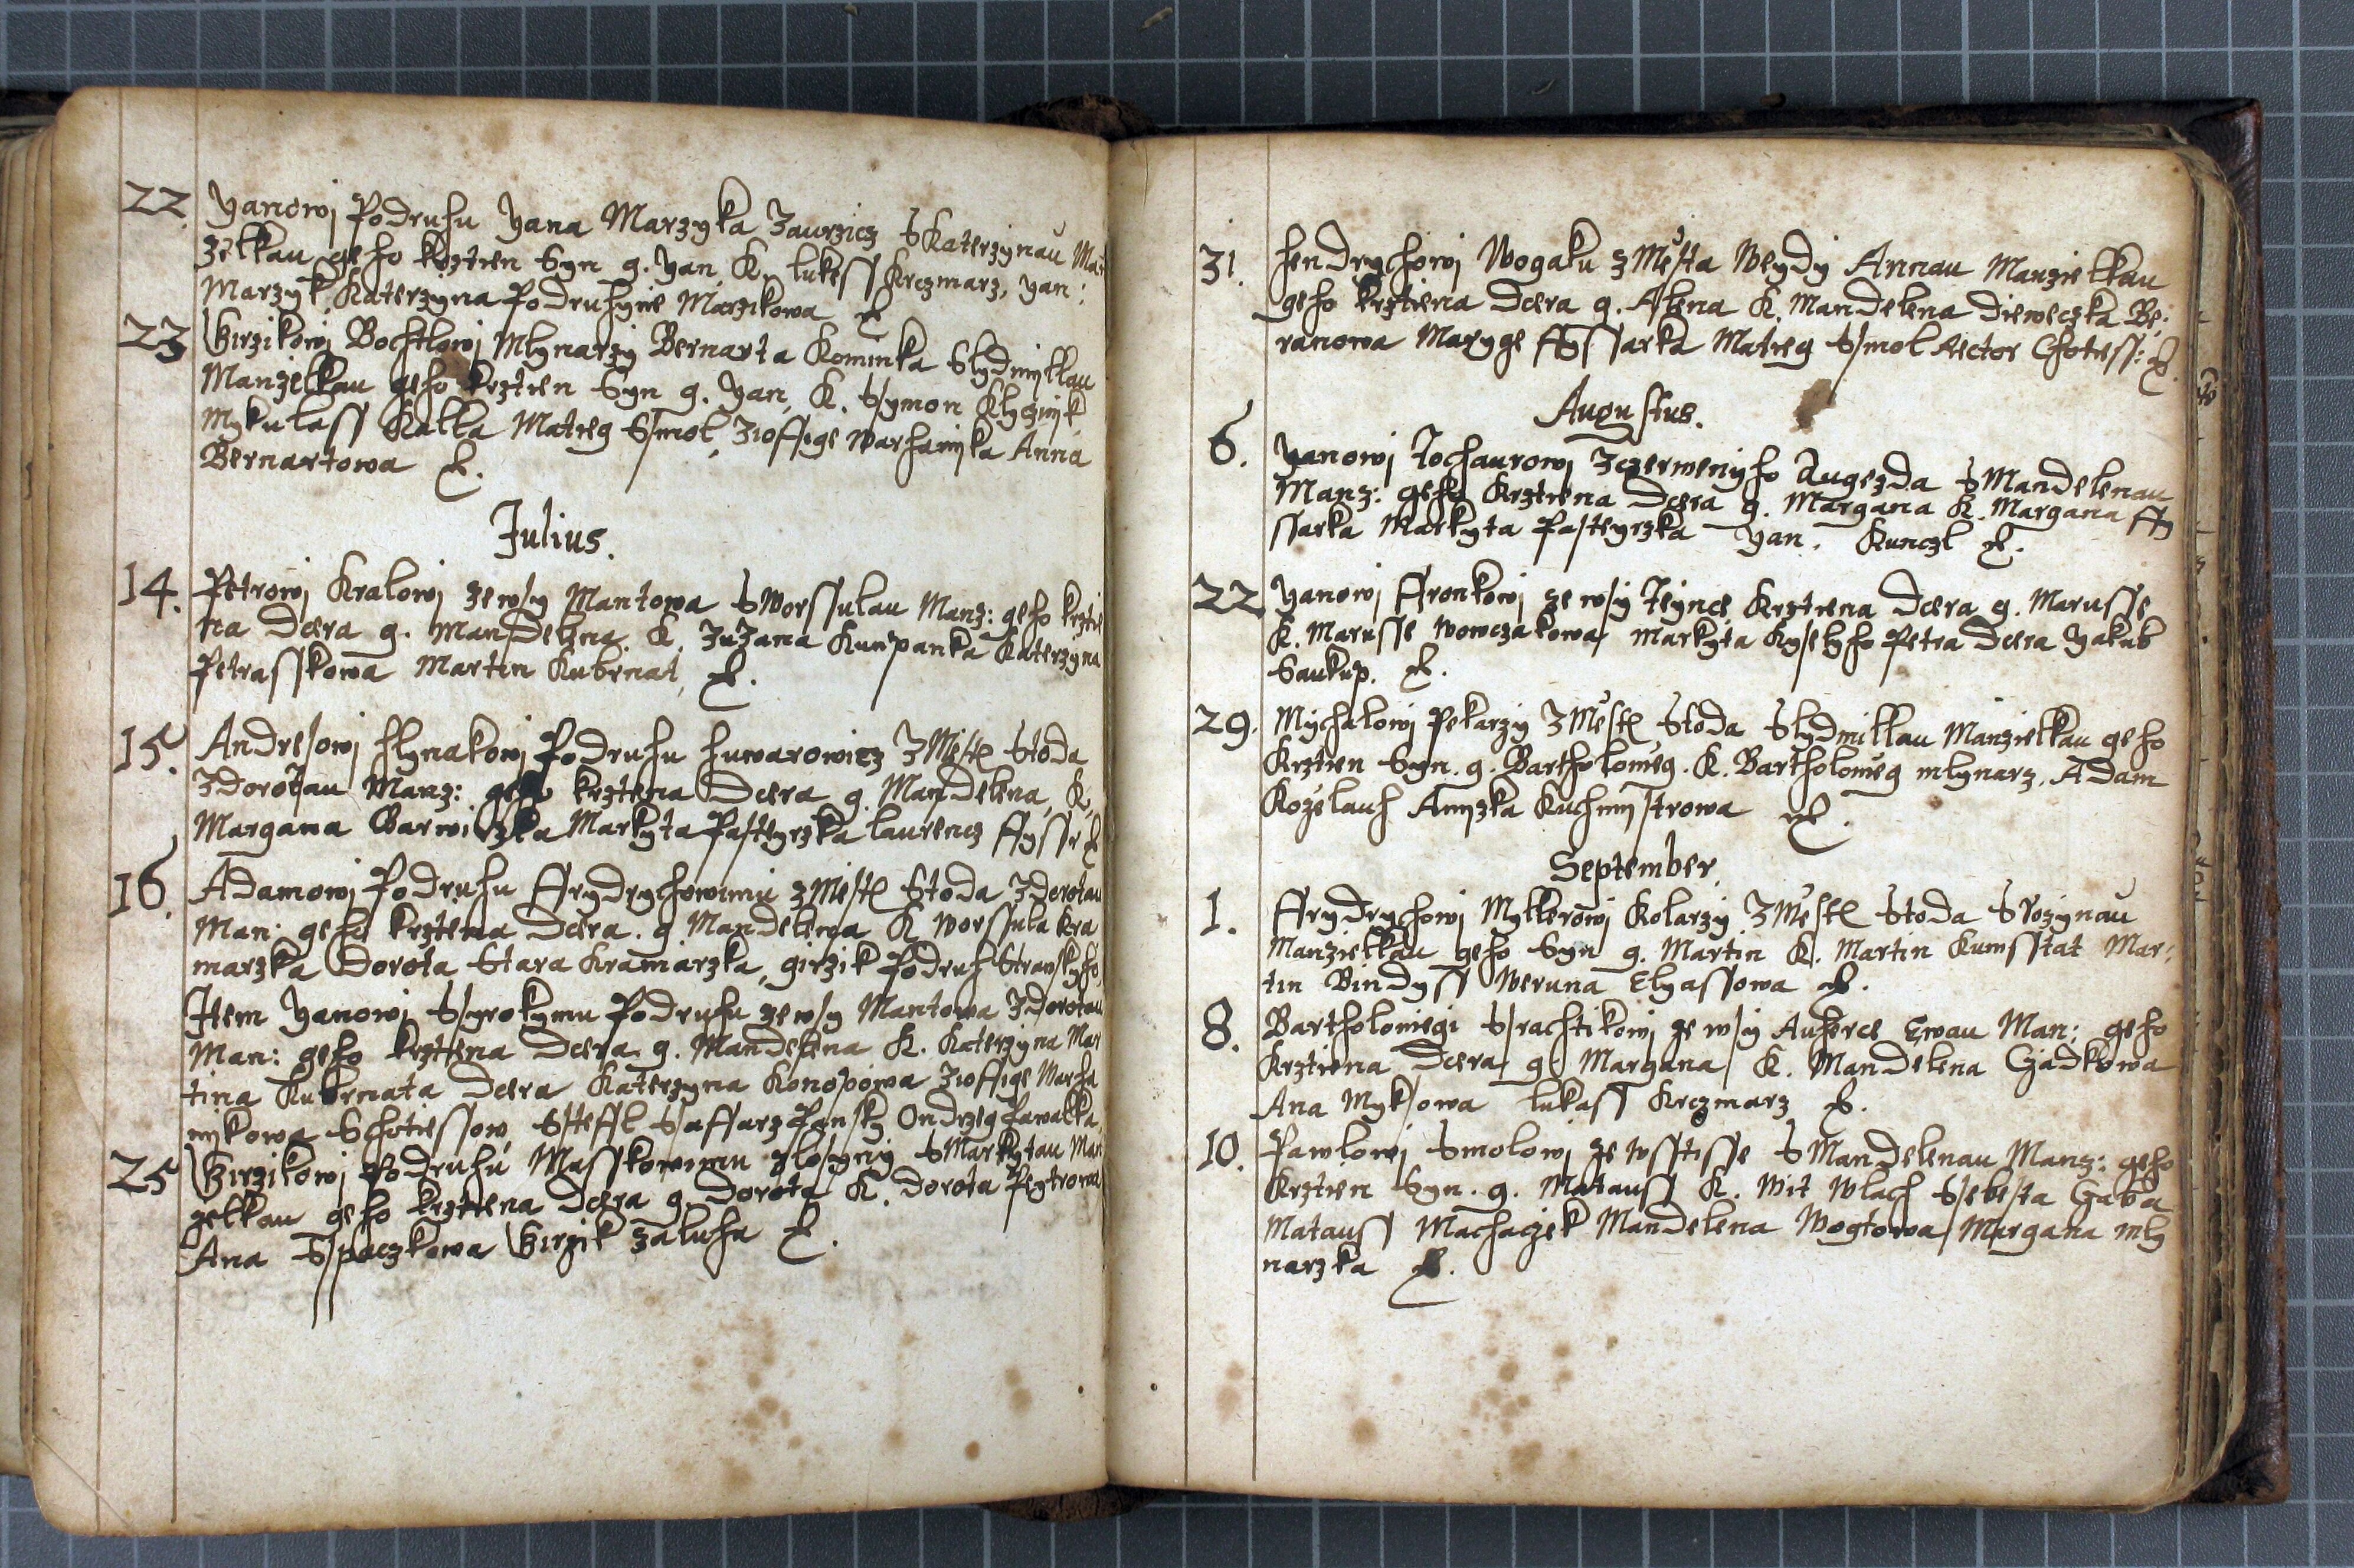 22. Yanowj Podruhu Yana Marzyka Zaurzicz SKaterzynau Man
zelkau geho krztien Syn g. Yan, K. lukess Krczmarz, Yan:
Marzyk Katerzyna Podruhyne Marzikowa &.
23 Girzikowj Bochtlowj Mlynarzy Bernarta Kominka Slydmyllau
Manzelkau geho krztien Syn g. Yan, K. Ssymon Klyznyk
Mykulass Kalla Matieg Ssmol, Zioffige Warhanyka Anna
Bernartowa &.
Julius.
14. Petrowj Kralowj zewsy Mantowa SWorssulau Manz: geho krztie
na Dcera g. Mandelena. K. ZuZana Kunpanka Katerzyna
Petrasskowa Martin Kubrnat, &.
15. Andresowj Hlynakowj Podruhu Huwarowicz ZMiest Stoda
Zdorotau Manz: geho krztiena Dcera g. Mandelena, K,
Margana Barwirzka Markyta Pasteyrzka Laurencz Ffysse &
16. Adamowj Podruhu Ffrydrychowimu zMiest Stoda Zdorotau
Man: geho krztiena Dcera. g. Mandelena K Worssula kra
marzka Dorota Stara Kramarzka, girzik Podruh Stranskyho,
Item Yanowj Ssyrokymu Podruhu zewsy Mantowa Zdorotau
Man: geho krztiena Dcera. g. Mandelena K. Katerzyna Mar
tina Kubrnata Dcera Katerzyna Konopowa Zioffige Warha
nykowa SChotiessow, Steffl Ssaffarz Pansky Ondrzeg Hawalka
25 Girzikowj Podruhu Masskowimu zlosyny SMarkytau Man
zelkau geho krztiena Dcera g. Dorota K. Dorota Peytrowa
Ana Sspaczkowa Girzik zaluha &.
31. Hendrychowj Wogaku zMiesta Weydy Annau Manzielkau
geho krztiena Dcera g. Alena K. Mandelena Dieweczka Be:
ranowa Maryge Ffyssarka Matieg Ssmol Rector Chotiess: &.
Augustus.
6. Yanowj Tochaurowj Zczerwenyho Augezda SMandelenau
Manz: geho Krztiena Dcera g. Margana K. Margana Ffy
ssarka Markyta Pasteyrzka Yan. Kunczl &.
22 Yanowj Ffronkowj ze wsy Teynce, Krztiena Dcera g. Marusse
K. Marusse Wowczakowa, Markyta Kyselyho Petra Dcera Yakub
Saukup. &.
29. Mychalowj Pekarzy ZMiest Stoda Slydmillau Manzielkau geho
Krztien Syn. g. Bartholomieg. K. Bartholomieg mlynarz. Adam
Kozelauh Anyzka Kuchmystrowa &.
September.
1. Ffrydrychowj Myllerowj Kolarzy ZMiest Stoda SRozynau
Manzielkau geho Syn g. Martin K. Martin Kumsstat Mar:
tin Bindyss Weruna Elyassowa &.
8. Bartholomiegi Ssrachtikowj ze wsy Auherce Ewau Man: geho
Krztiena Dcera, g. Margana, K. Mandelena Gadkowa
Ana Myksowa Lukass Krczmarz &.
10. Pawlowj Smolowj ze Wsstisse SMandelenau Manz: geho
Krztien Syn. g. Matauss K. Wit Wlach Ssebesta Gaba
Matauss Machaczek Mandelena Wogtowa, Margana mly
narzka &.